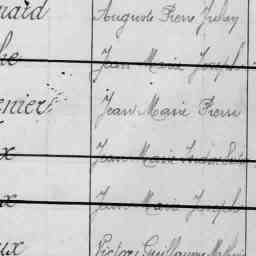 Auguste Pierre
Jean Marie Joseph
enier Jean Marie Pierre
x Jean Marie
x Jean Marie Joseph
ux Victor Guillaume Mathurin